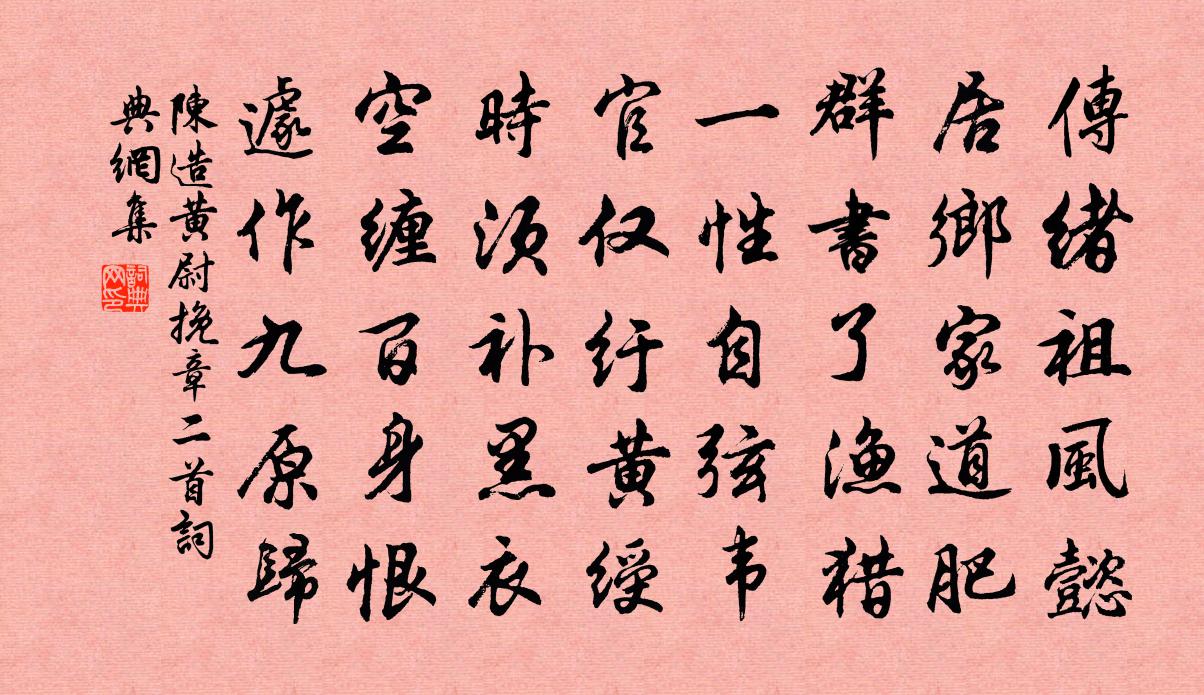 傳緒祖風懿
居鄉家道肥
群書了漁猎
一性自弦韦
官仅纡黄绶
時须补黑衣
空缠百身恨
遽作九原歸
陳造黄尉挽章二首詞
典網集
詞典
网印